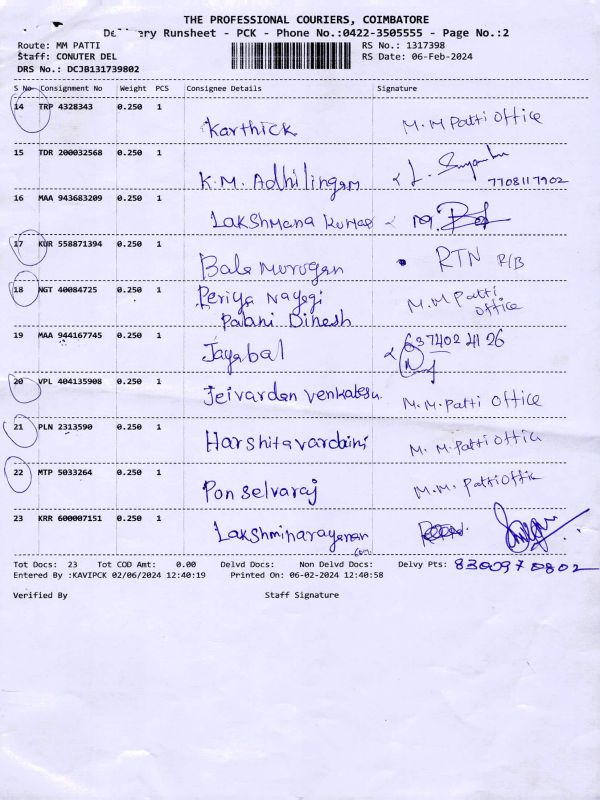 THE PROFESSIONAL COURIERS, COIMBATORE
Delivery Runsheet - PCK - Phone No.:0422-3505555 - Page No.:2
Route: MM PATTI RS No.: 1317398
Staff: CONUTER DEL RS Date: 06-Feb-2024
DRS No.: DCJB131739802
S No Consignment No Weight PCS Consignee Details Signature
14 TRP 4328343 0.250 1
Karthick M.M Patti Office
15 TDR 200032568 0.250 1
K.M. Adhilingam 7708117902
16 MAA 943683209 0.250 1
Lakshmana Kumar
17 KUR 558871394 0.250 1
Bala Murugan RTN R/B
18 NGT 40084725 0.250 1
Periya Nayagi M.M Patti
Palani Dinesh office
19 MAA 944167745 0.250 1
Jayabal 637402 4126
20 VPL 404135908 0.250 1
Jeivardan Venkatesu. M.M. Patti Office
21 PLN 2313590 0.250 1
Harshitavardaini M. M. Patti Office
22 MTP 5033264 0.250 1
Ponselvaraj M.M. Patti Offic
23 KRR 600007151 0.250 1
Lakshminarayanan
Tot Docs: 23 Tot COD Amt: 0.00 Delvd Docs: Non Delvd Docs: Delvy Pts: 8300970802
Entered By :KAVIPCK 02/06/2024 12:40:19 Printed On: 06-02-2024 12:40:58
Verified By Staff Signature